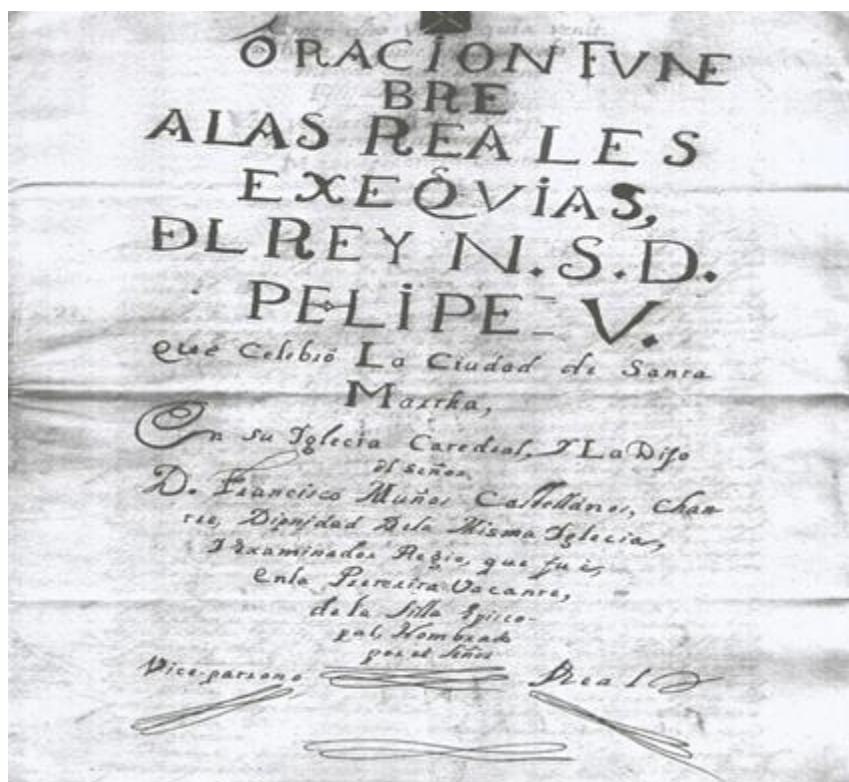 ORACION FVNE
BRE
A LAS REALES
EXEQVIAS,
DL REY N. S. D.
PELIPE V.
que Celebró La Ciudad de Santa
Martha,
En su Iglecia Catedral, Y La Dijo
el señor
D. Francisco Muños Castellános, Chan-
tre, Dignidad De la Misma Iglecia,
Y Examinador Regio, que fue,
en la Vacante,
de la Silla Episco-
pal, Nombrado
por el Señor
Vice-patrono Real